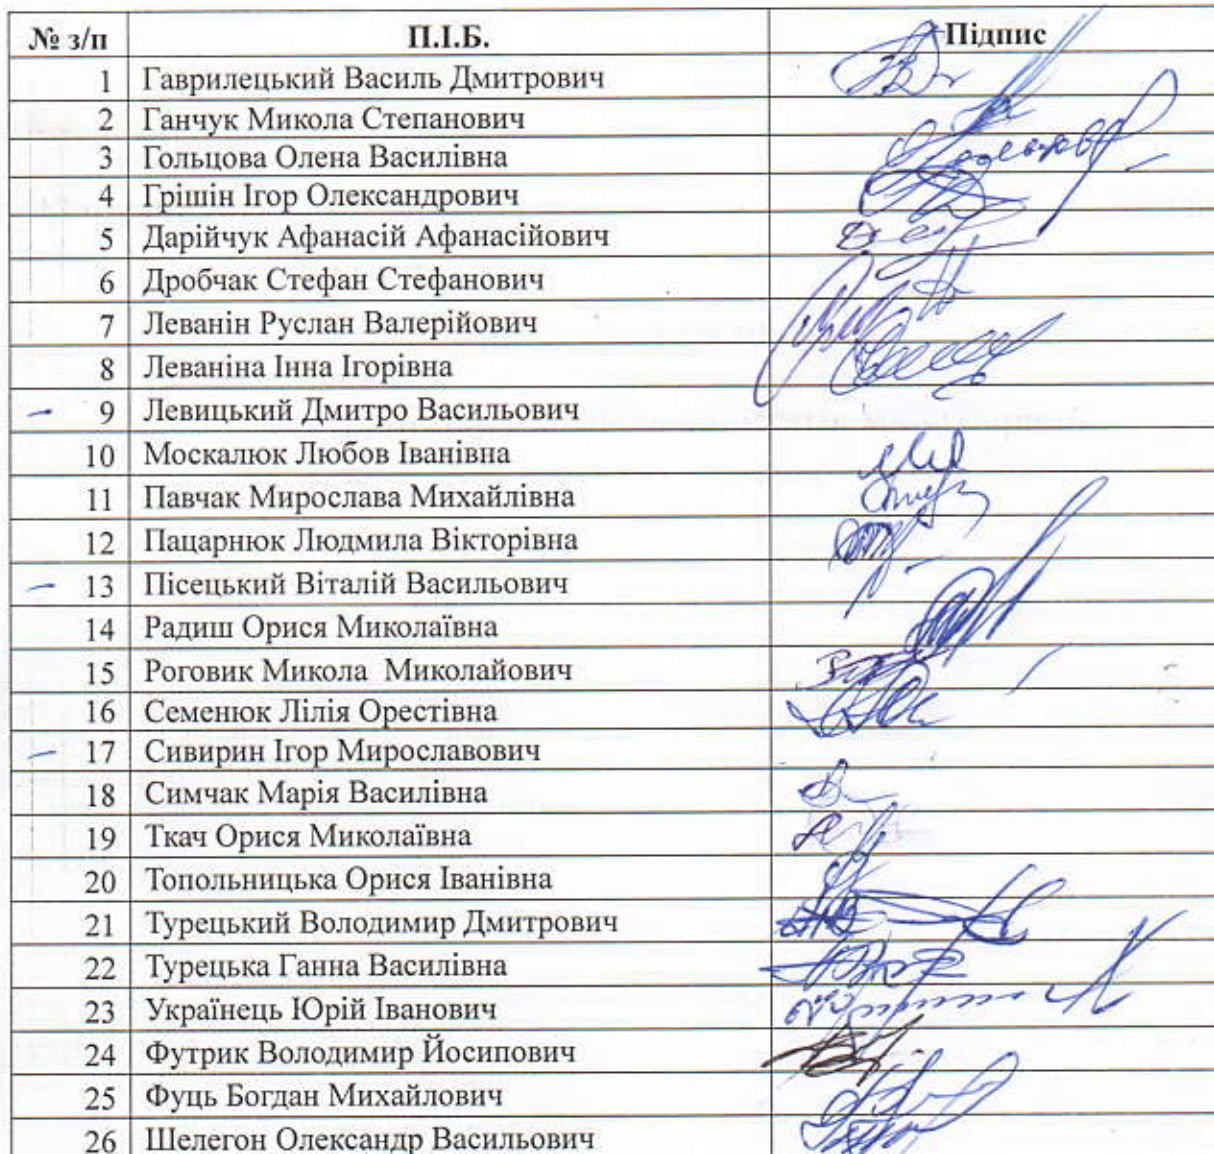 № з/п П.І.Б. Підпис
1 Гаврилецький Василь Дмитрович
2 Ганчук Микола Степанович
3 Гольцова Олена Василівна
4 Грішін Ігор Олександрович
5 Дарійчук Афанасій Афанасійович
6 Дробчак Стефан Стефанович
7 Леванін Руслан Валерійович
8 Леваніна Інна Ігорівна
9 Левицький Дмитро Васильович
10 Москалюк Любов Іванівна
11 Павчак Мирослава Михайлівна
12 Пацарнюк Людмила Вікторівна
13 Пісецький Віталій Васильович
14 Радиш Орися Миколаївна
15 Роговик Микола Миколайович
16 Семенюк Лілія Орестівна
17 Сивирин Ігор Мирославович
18 Симчак Марія Василівна
19 Ткач Орися Миколаївна
20 Топольницька Орися Іванівна
21 Турецький Володимир Дмитрович
22 Турецька Ганна Василівна
23 Українець Юрій Іванович
24 Футрик Володимир Йосипович
25 Фуць Богдан Михайлович
26 Шелегон Олександр Васильович